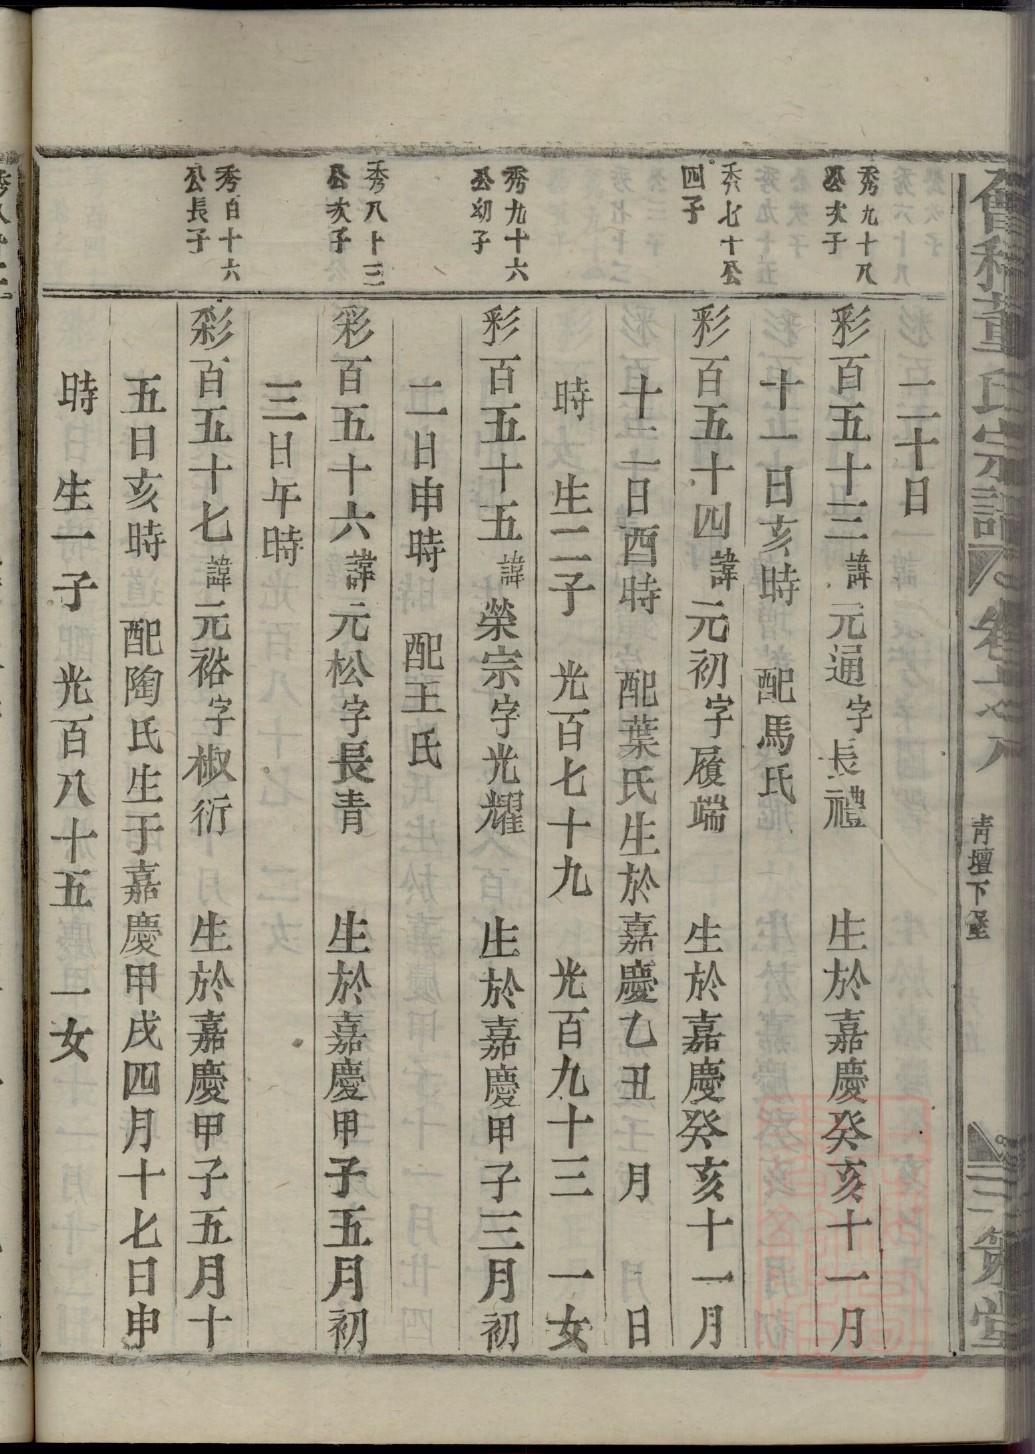 會稽董氏宗譜
青壇下堡
三策堂
二十日
秀九十八
公次子
彩百五十三諱元通字長禮 生於嘉慶癸亥十一月
十一日亥時 配馬氏
秀七十公
四子
彩百五十四諱元初字履端 生於嘉慶癸亥十一月
十二日酉時 配葉氏生於嘉慶乙丑 月 日
時 生二子 光百七十九 光百九十三 一女
秀九十六
公幼子
彩百五十五諱榮宗字光耀 生於嘉慶甲子三月初
二日申時 配王氏
秀八十三
公次子
彩百五十六諱元松字長青 生於嘉慶甲子五月初
三日午時
秀百十六
公長子
彩百五十七諱元裕字椒衍 生於嘉慶甲子五月十
五日亥時 配陶氏生于嘉慶甲戌四月十七日申
時 生一子 光百八十五 一女